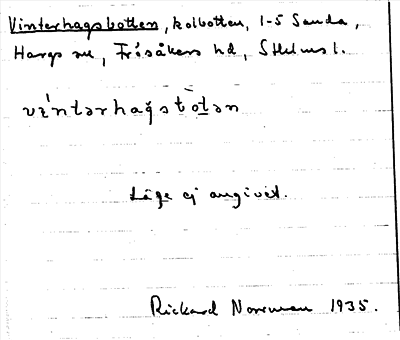 Vinterhagsbotten, kolbotten, 1-5 Sanda,
Hargs sn, Frösåkers hd, Sthlms l.
vi'ntərhag̊stòtən
Läge ej angivet.
Rickard Norrman 1935.